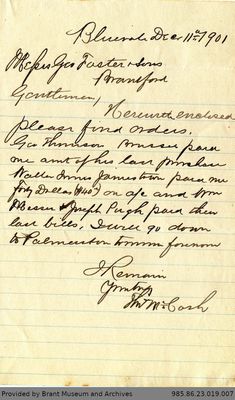 Bluevale Dec 11th 1901
Messrs Geo Foster & Sons
Brantford
Gentlemen,
Herewith enclosed
please find orders.
Geo Thomson, paid
me amt of his last purchase
Walter Innes Jamestown paid me
forty Dollars ($40) on a/c and Wm
& Joseph Pugh paid their
last bills. I will go down
to Palmerston tomm forenoon
I Remain
Yours truly
McCosh
Provided by Brant Museum and Archives
985.86.23.019.007